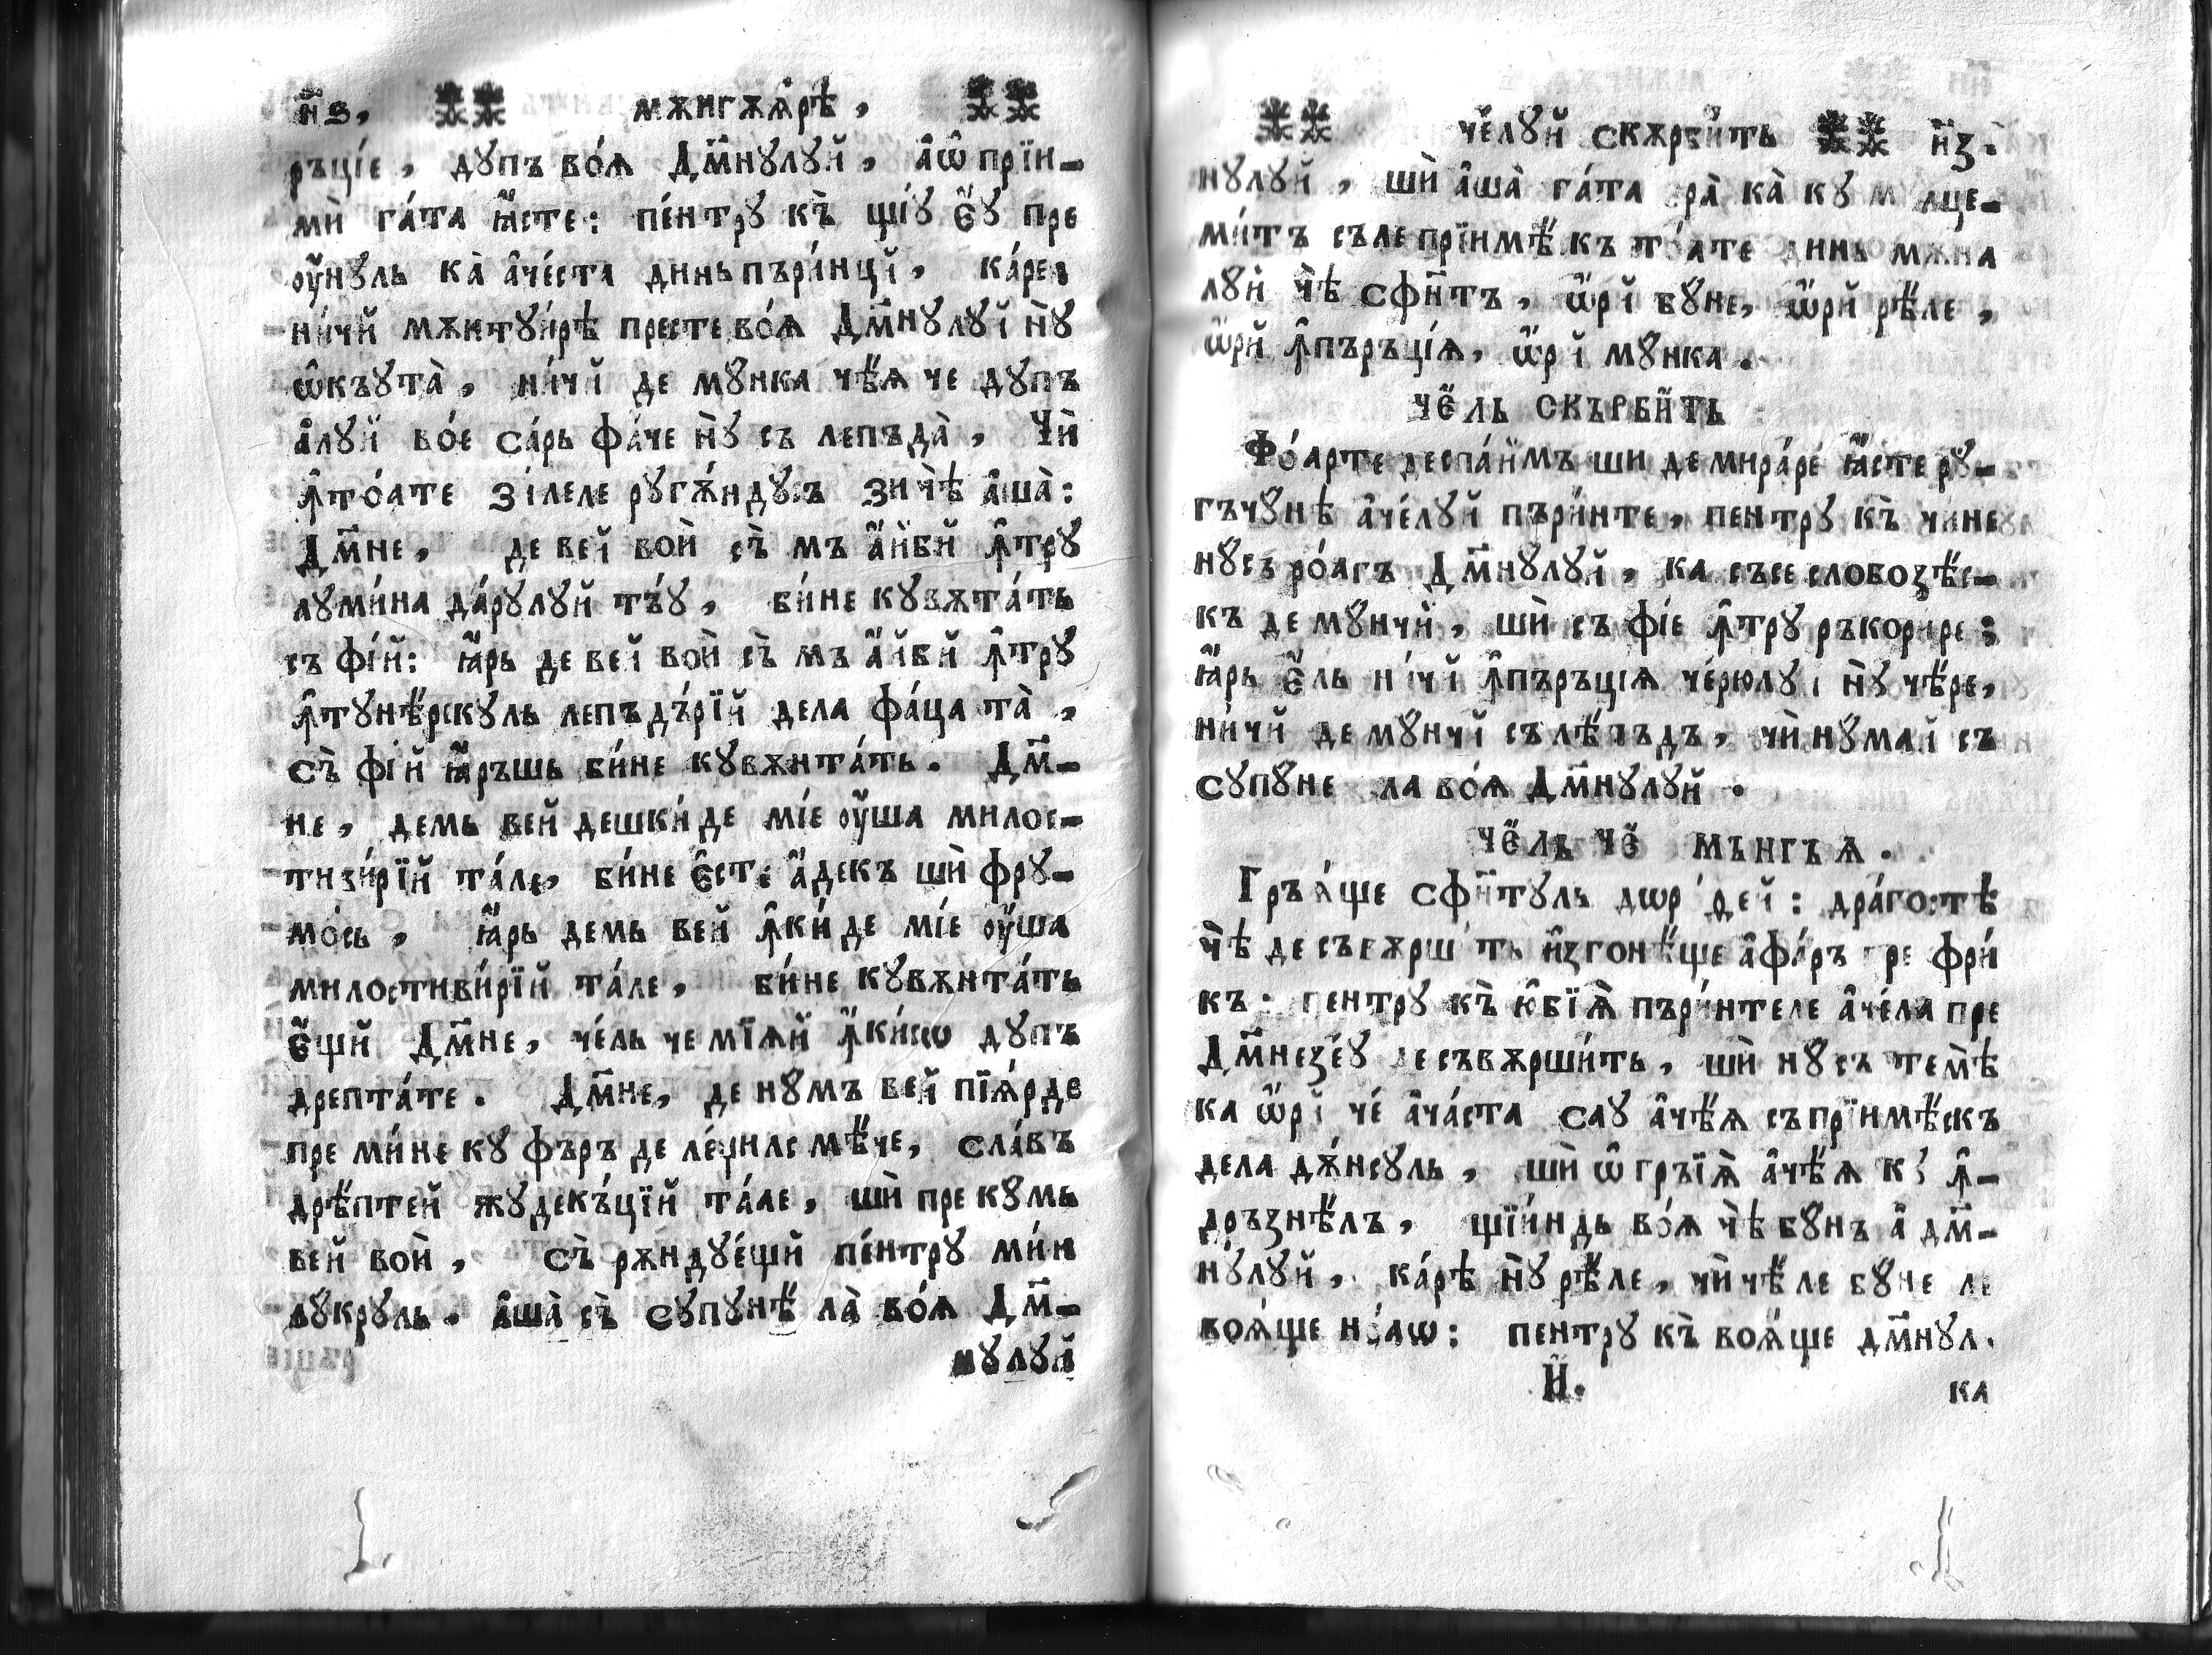 н҃в, мѫнгѫѧрѣ,
ръцїе, дꙋпъ во́ѧ Дм҃нꙋлꙋй, а҆ѡ҆ прїи-
мѝ га́та ꙗ҆сте: пе́нтрꙋ къ̀ щїꙋ є҆ꙋ пре
ѹ҆нꙋль ка̀ а҆че́ста динь пъри́нцй, ка́рел
ни́чй мѫнтꙋи́рѣ престе во́ѧ Дм҃нꙋлꙋй нꙋ̀
ѡ҆къꙋта̀, ни́чй де мꙋнка чѣ́ѧ че дꙋпъ
а҆лꙋй во́е са́рь фа́че нꙋ̀ съ лепъда̀, Чѝ
ꙟ҆то́ате зі́леле рꙋгѫ́ндꙋсъ зичѣ̀ а҆ша̀:
Дм҃не, де вей вой съ̀ мъ а҆йбй ꙟ҆трꙋ
лꙋми́на да́рꙋлꙋй тъ́ꙋ, би́не кꙋвѫта́ть
съ фі́й: ꙗ҆рь де вей вой съ̀ мъ а҆йвй ꙟ҆трꙋ
ꙟ҆тꙋнѣ́рекꙋль лепъдъ́рїй дела фа́ца та̀,
съ̀ фі́й ꙗ҆ръшь би́не кꙋвѫнта́ть. Дм҃-
не, демь вей дешки́де мі́е ѹ҆ша милос-
тиви́рїй та́ле, би́не є҆сте а҆декъ шѝ фрꙋ-
мо́сь, ꙗ҆рь демь вей ꙟ҆ки́де мі́е ѹ҆ша
милостиви́рїй та́ле, би́не кꙋвѫнта́ть
є҆щй Дм҃не, че́ль че мїѧй ꙟ҆ки́сѡ дꙋпъ
дрепта́те. Дм҃не, де нꙋмъ вей пїѧ́рде
пре ми́не кꙋ фъръ де ле́ѹиле мѣ́че, сла́въ
дрѣ́птей жꙋдекъ́цїй та́ле, шѝ пре кꙋмь
вей вой, съ̀ рѫндꙋе́щй пе́нтрꙋ ми́н
лꙋкрꙋль. А҆ша̀ съ̀ сꙋпꙋнѣ̀ ла̀ во́ѧ Дм҃-
нꙋлꙋй
че́лꙋй скѫрви́ть н҃з.
нꙋлꙋй, шѝ а҆ша̀ га́та ка̀ кꙋ
ми́тъ съле прїимѣ́къ то́ате динь мѫна
лꙋй чѣ̀ сфн҃тъ, ѡ҆рй бꙋне, ѡ҆рй рѣ́ле,
ѡ҆рй ꙟ҆пъръцїѧ, ѡ҆рй мꙋнка.
че́ль скърби́ть
Фо́арте деспа́ймъ ши де мира́ре ꙗ҆сте рꙋ-
гъчꙋнѣ̀ а҆че́лꙋй пъри́нте, пентрꙋ къ̀ чине
нꙋсъ ро́агъ Дм҃нꙋлꙋй, ка съсе слобозѣ́с-
къ де мꙋнчй, шѝ съ фі́е ꙟ҆трꙋ ръкорире;
ꙗ҆рь є҆ль ни́чй ꙟ҆пъръцїѧ че́рюлꙋй нꙋ̀ чѣ́ре,
ни́чй де мꙋнчй сълѣ́пъдъ, чѝ нꙋмай съ
сꙋпꙋне ла во́ѧ Дм҃нꙋлꙋй.
че́ль чѐ мънгъѧ.
Гръа́ще сфн҃тꙋль дѡрѳей: дра́гостѣ
чѣ̀ де съвѫршить и҆згонѣ́ще а҆фа́ръ пре фри́
къ: пентрꙋ къ̀ ю҆бїѧ̀ пъри́нтеле а҆че́ла пре
Дм҃незе́ꙋ де съвѫрши́ть, шѝ нꙋсъ темѣ̀
ка ѡ҆рй че́ а҆ча́ста саꙋ а҆чѣ́ѧ съ прїимѣ́скъ
дела дѫ́нсꙋль, шѝ ѡ҆ гръїѧ̀ а҆чѣ́ѧ кꙋ ꙟ҆-
дръзнѣ́лъ, щїи́ндь во́ѧ чѣ̀ бꙋнъ а҆ дм҃-
нꙋ́лꙋй, ка́рѣ нꙋ̀ рѣ́ле, чѝ чѣ́ле бꙋне ле
воѧ́ще но́аѡ: пентрꙋ къ̀ воѧ́ще дм҃нꙋл.
И҃. ка